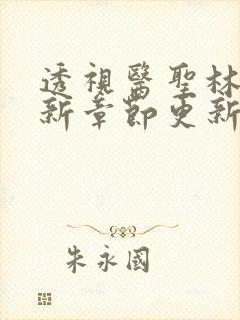 透視醫聖林
新章節更新
朱永國